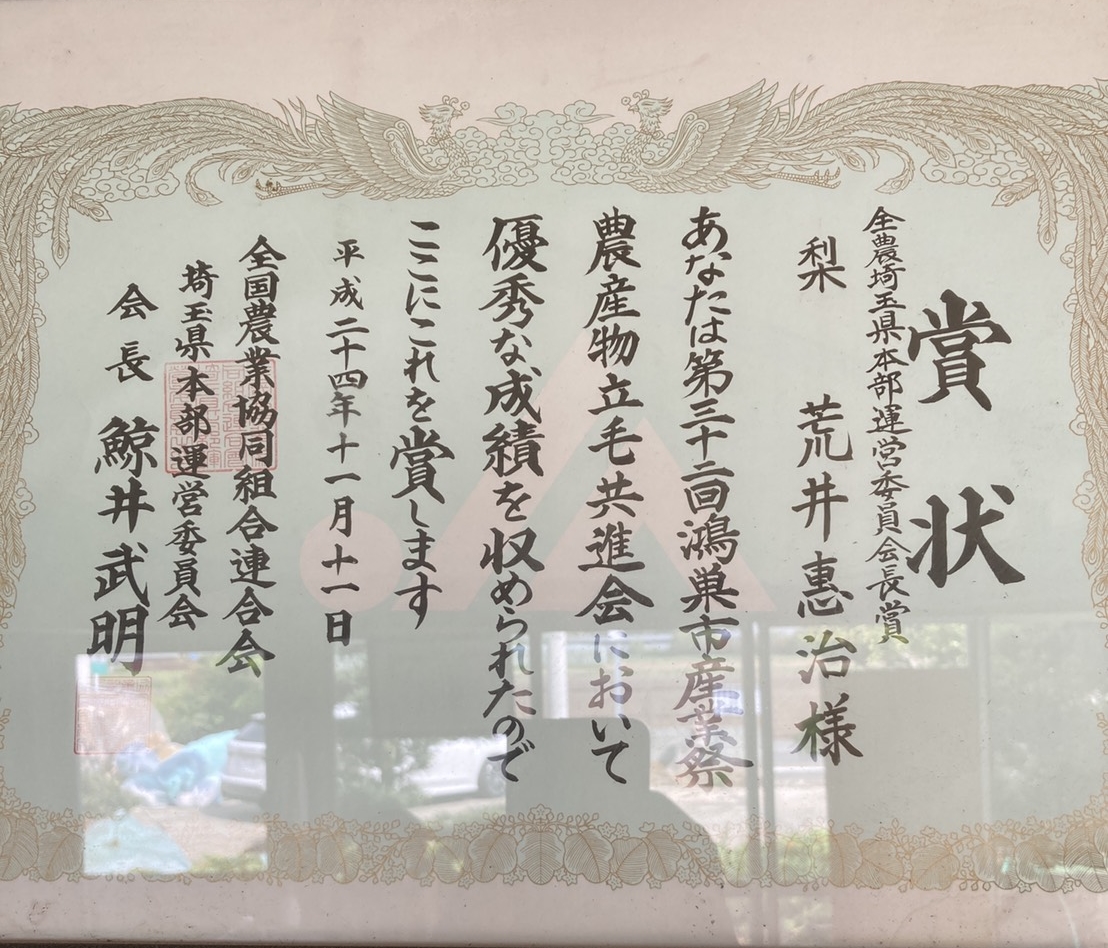 賞状
全農埼玉県本部運営委員会長賞
梨 荒井惠治様
あなたは第三十二回鴻巣市産業祭
農産物立毛共進会において
優秀な成績を収められたので
ここにこれを賞します
平成二十四年十一月十一日
全国農業協同組合連合会
埼玉県本部運営委員会
会長 鯨井武明